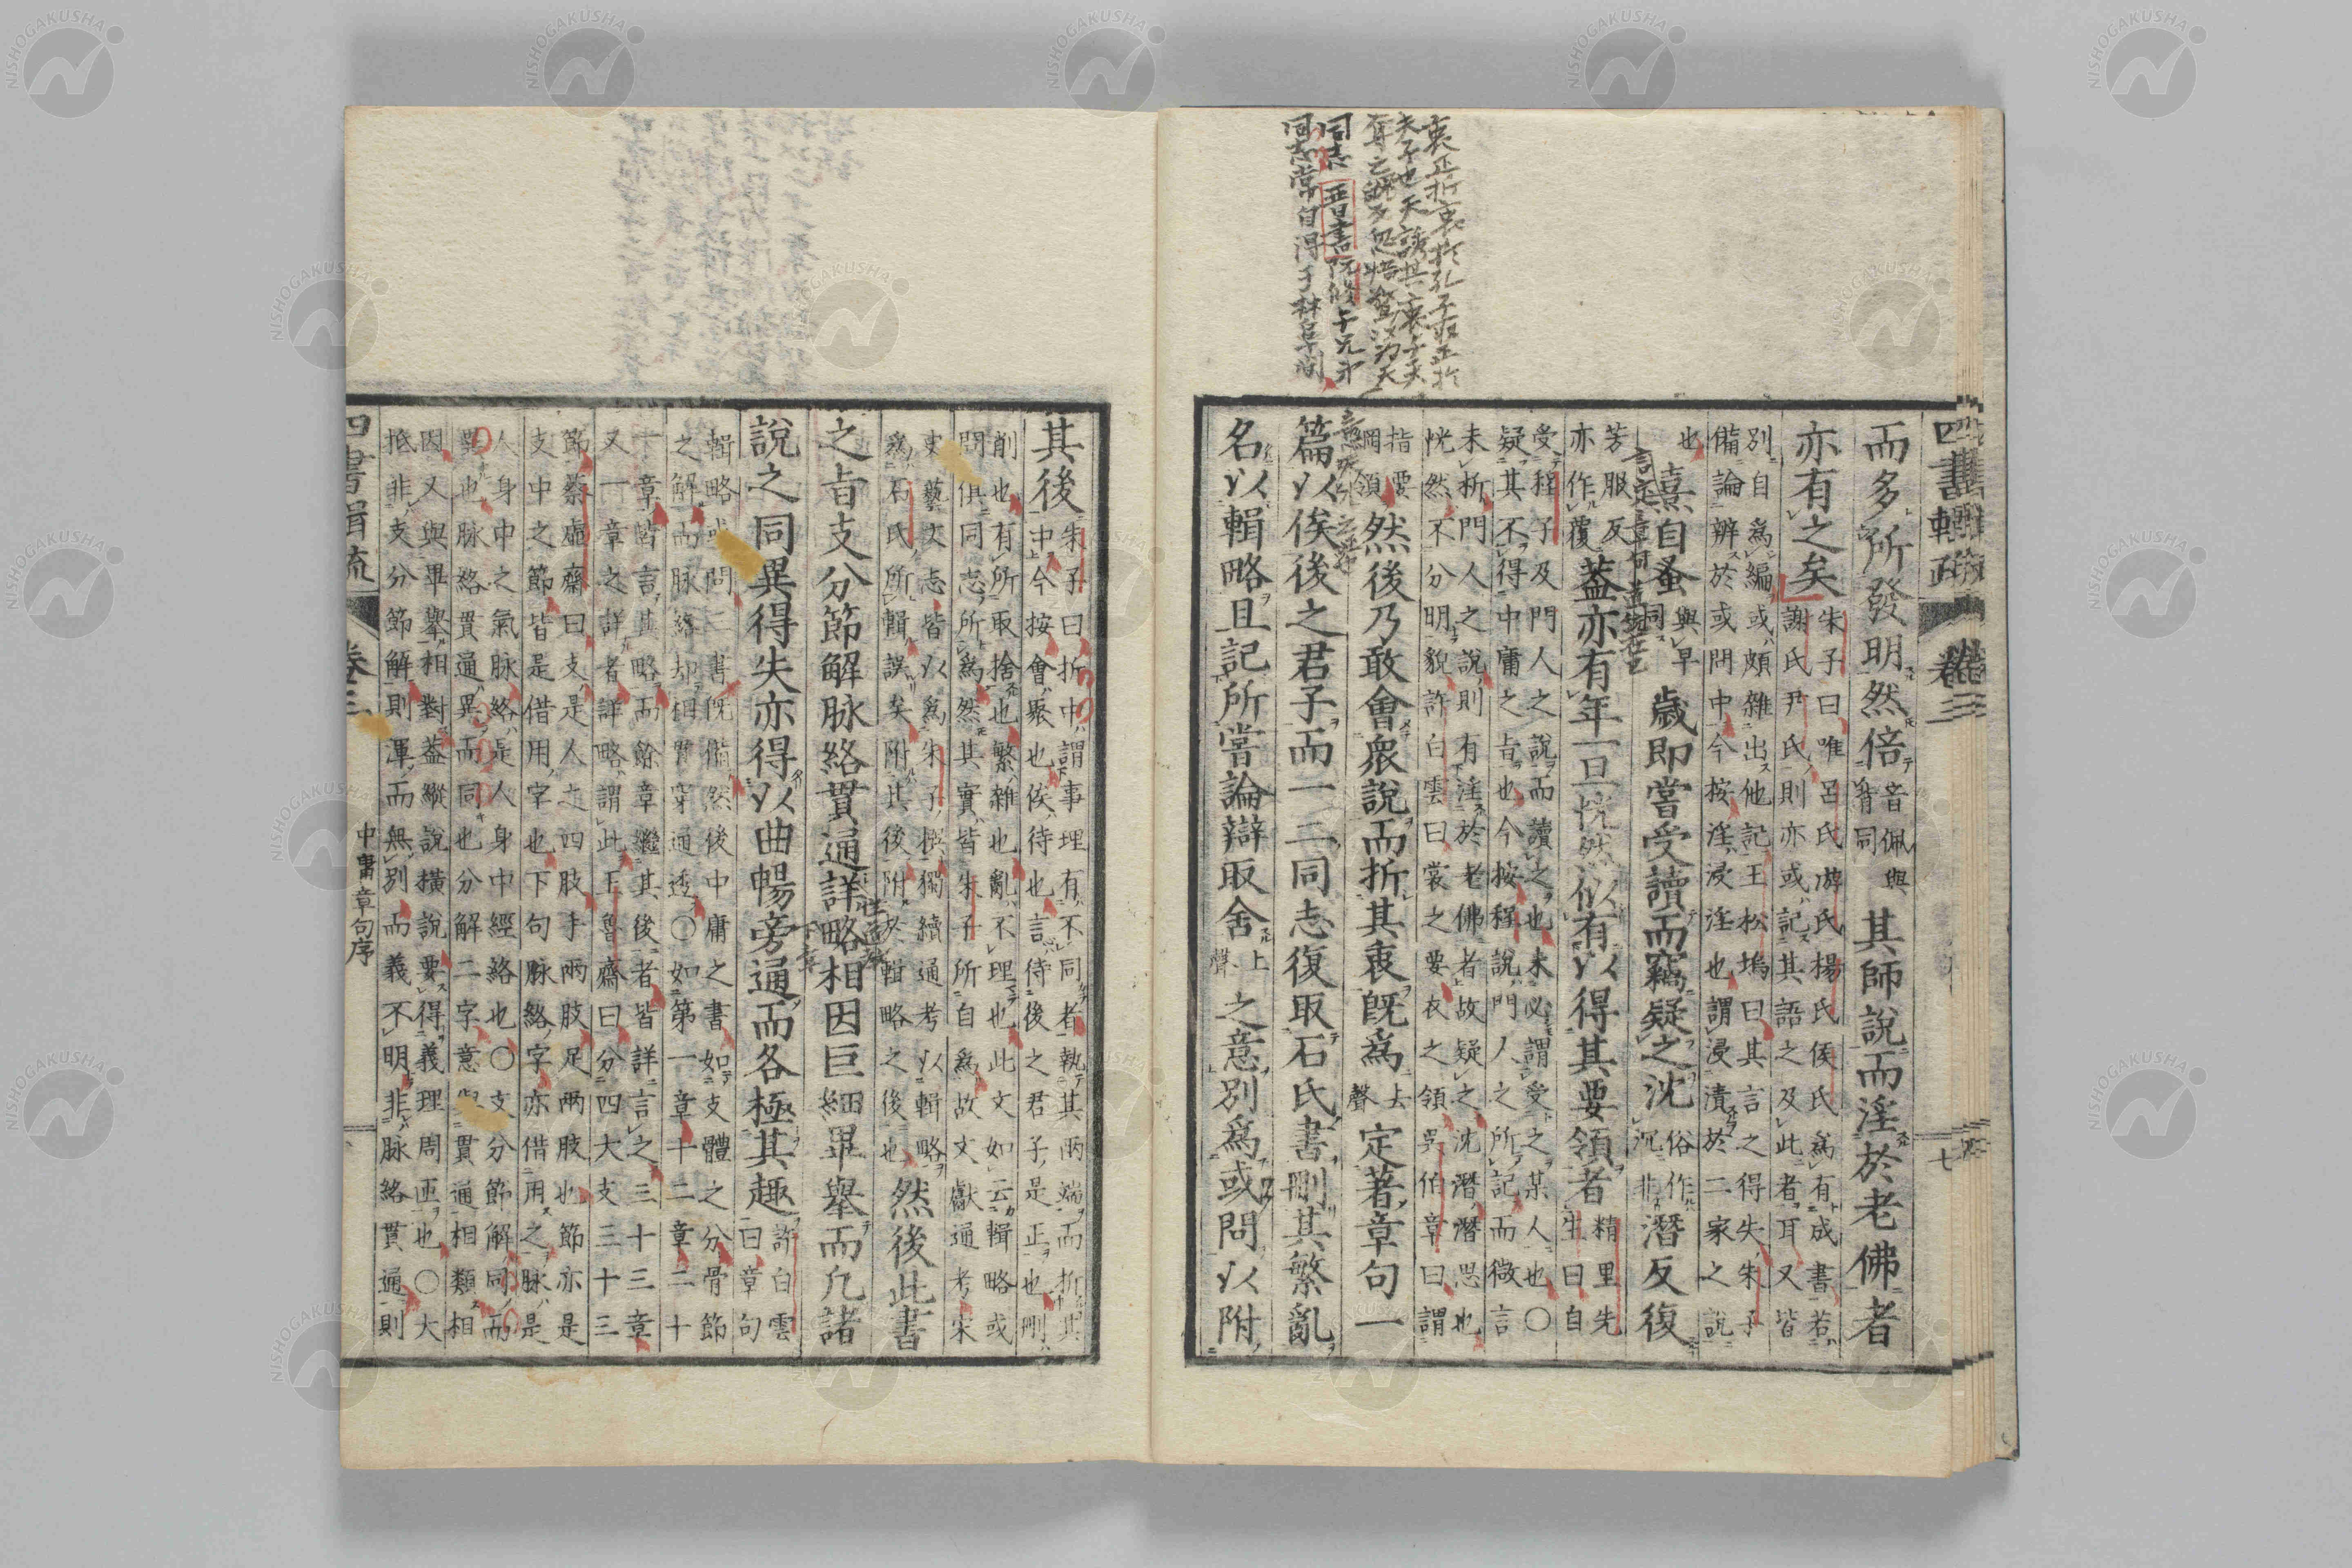 NISHOGAKUSHA
衷正折衷折於孔子取正於
夫子也天誘其衷
同志 晋書阮修与兄弟
同志常自得于林阜間
四書輯疏 卷三 七
而多所發明然倍音佩與背同其師說而淫於老佛者
亦有之矣朱子曰唯呂氏游氏楊氏侯氏爲有成書若
謝氏尹氏則亦或記其語之及此者耳又皆
別自爲編或頗雜出他記王松塢曰其言之得失朱子
備論辨於或問中今按淫浸淫也謂浸漬於二家之說
也熹自蚤與早同歲即嘗受讀而竊疑之沈俗作沉非潛反復
芳服反亦作覆蓋亦有年一旦恍然似有以得其要領者精里先生曰自
受程子及門人之說而讀之也未必謂受之某人也〇
疑其不得中庸之旨也今按程說門人之所記而微言
未析門人之說則有淫於老佛者故疑之沈潛潛思也
恍然不分明貌許白雲曰裳之要衣之領吳伯章曰謂
指要綱領然後乃敢會衆說而折其衷旣爲去聲定著章句一
篇以俟後之君子而一二同志復取石氏書刪其繁亂
名以輯略且記所嘗論辯取舍上聲之意別爲或問以附
其後朱子曰折中謂事理有不同者執其兩端而折其
中今按會聚也俟待也言待後之君子是正也刪
削也有所取捨也繁雜也亂不理也此文如云輯略或
問俱同志所爲然其實皆朱子所自爲故文獻通考宋
史藝文志皆以爲朱子撰獨續通考以輯略
爲石氏所輯誤矣附其後附於輯略之後也然後此書
之旨支分節解脉絡貫通詳略相因巨細畢舉而凡諸
說之同異得失亦得以曲暢旁通而各極其趣許白雲曰章句
輯略或問三書旣備然後中庸之書如支體之分骨節
之解而脉絡却相貫穿通透〇如第一章十二章二十
一章皆言其略而餘章繼其後者皆詳言之三十三章
又一章之詳者詳略謂此王魯齋曰分四大支三十三
節蔡虛齋曰支是人之四肢手兩肢足兩肢也節亦是
支中之節皆是借用字也下句脉絡字亦借用之脉是
人身中之氣脉絡是人身中經絡也〇支分節解同而
異也脉絡貫通異而同也分解二字意與貫通相類相
因又與畢擧相對蓋縱說橫說要得義理周匝也〇大
抵非支分節解則渾而無別而義不明非脉絡貫通則
四書輯疏 卷三 中庸章句序